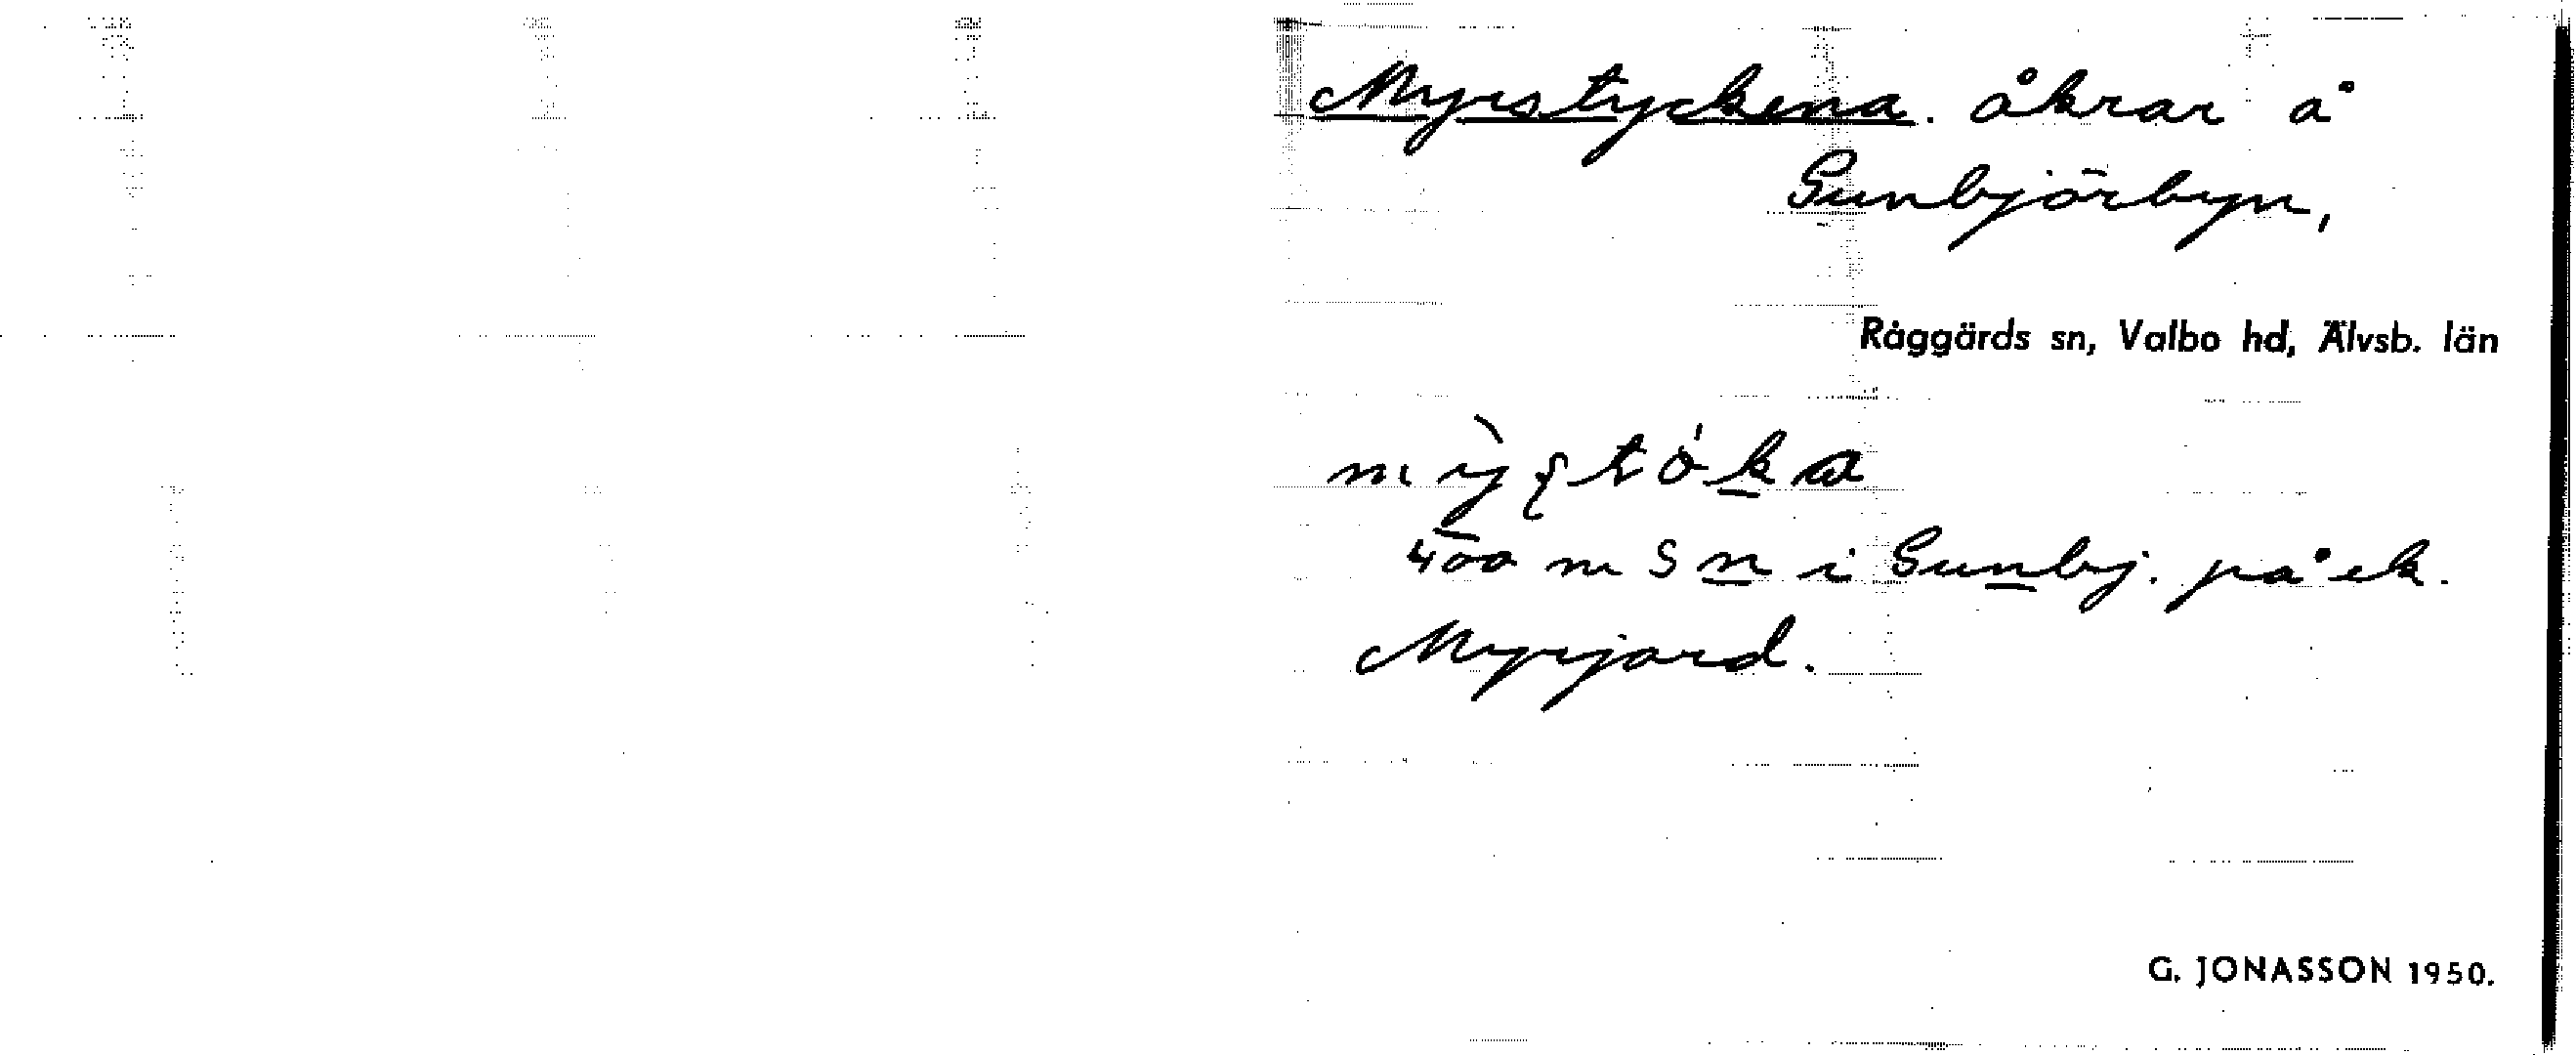 Myrstyckena. åkrar å
Sunbjörbyn,
Råggärds sn, Valbo hd, Älvsb. län
400 m S n i Sunbj. på ek.
Myrjord.
G. JONASSON 1950.